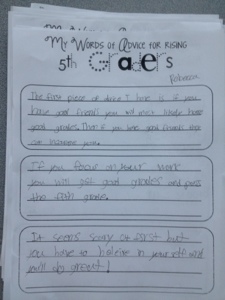 My Words of Advice for Rising
5th Graders
Rebecca
The first piece of advice I have is if you
have good friends you will most likely have
good grades. That if you have good friends that
can
If you focus on your work
you will get good grades and pass
the fifth grade.
It seems scary at first but
you have to believe in your self and
you'll do great!